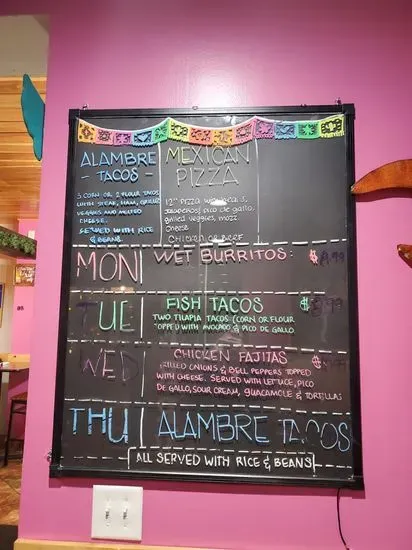 ALAMBRE
TACOS
3 CORN OR 2 FLOUR TACOS
WITH STEAK, HAM, GRILLED
VEGGIES AND MELTED
CHEESE.
SERVED WITH RICE
& BEANS.
MEXICAN
PIZZA
12" PIZZA
JALAPEÑOS, PICO DE GALLO,
GRILLED VEGGIES, MOZZ.
CHEESE
CHICKEN OR BEEF
MON
WET BURRITOS:
TUE
FISH TACOS
TWO TILAPIA TACOS (CORN OR FLOUR
TOPPED WITH AVOCADO & PICO DE GALLO
WED
CHICKEN FAJITAS
GRILLED ONIONS & BELL PEPPERS TOPPED
WITH CHEESE. SERVED WITH LETTUCE, PICO
DE GALLO, SOUR CREAM, GUACAMOLE & TORTILLAS
THU
ALAMBRE TACOS
ALL SERVED WITH RICE & BEANS